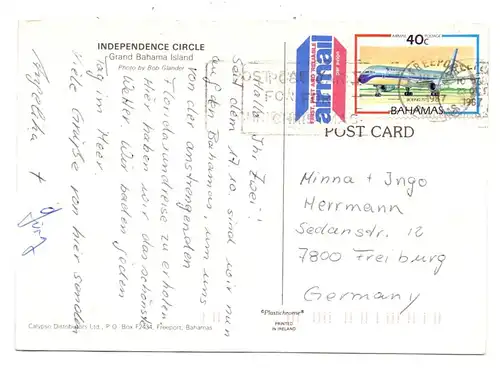 INDEPENDENCE CIRCLE
Grand Bahama Island
Photo by Bob Glander
Hallo Ihr Zwei!
Seit dem 17.10. sind wir nun
auf den Bahamas, um uns
von der anstrengenden
Floridarundreise zu erholen
Hier haben wir das schönste
Wetter. Wir baden jeden
Tag im Meer.
Viele Grüße von hier senden
Angelika +
Calypso Distributors Ltd., P.O. Box F2434, Freeport, Bahamas
airmail
FIRST, FAST AND RELIABLE
par avion
AIRMAIL POSTAGE
40c
BOEING 757
BAHAMAS
FREEPORT
1987
POST
FOR
POST CARD
Minna + Ingo
Herrmann
Sedanstr. 12
7800 Freiburg
Germany
"Plastichrome"®
PRINTED
IN IRELAND